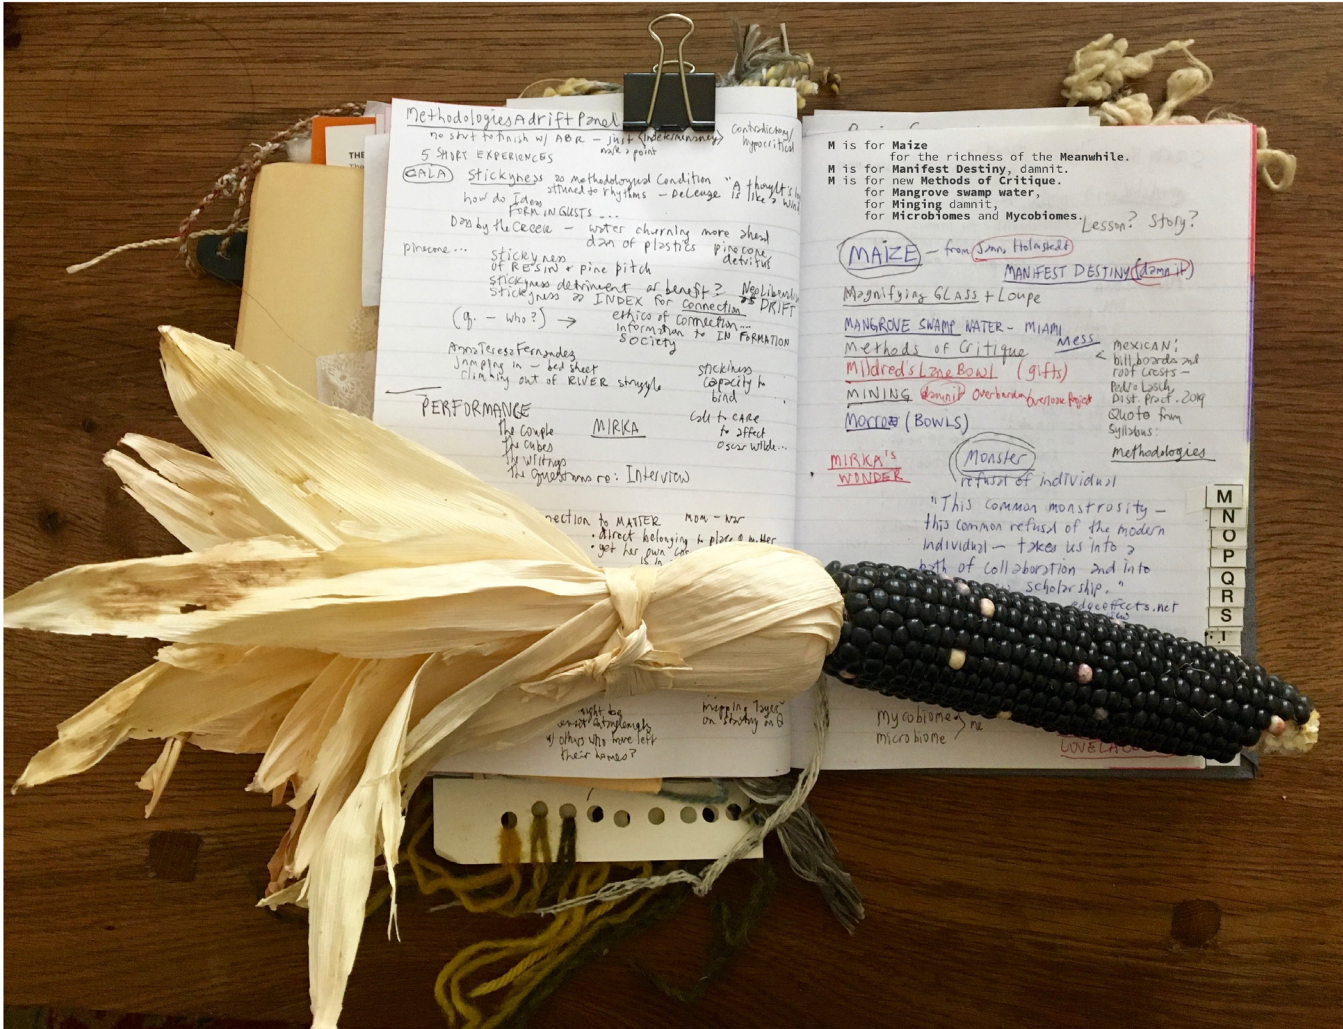 THE
Methodologies Adrift Panel
no start to finish w/ ABR — just <indeterminacy>
make a point
contradictory/
hypocritical
5 SHORT EXPERIENCES
GALA Stickyness as methodological Condition "A thought's
attuned to rhythms — Deleuze is like a wind
how do Ideas
FORM IN GUSTS ...
Dam by the Creek — water churning more ahead
dam of plastics pinecone
detritus
pinecone ...
stickyness
of RESIN & pine pitch
stickyness detriment or benefit? Neoliberalism
stickyness as INDEX for connection as DRIFT
(q. — who?) → ethics of connection ...
information to IN FORMATION
society
Ana Teresa Fernandez
jumping in — bed sheet
climbing out of RIVER struggle
stickiness
capacity to
bind
PERFORMANCE
the couple
the cubes
the writings
the questions re: Interview
MIRKA
call to CARE
to affect
Oscar Wilde...
nection to MATTER mom — war
• direct belonging to place & matter
• get her own
is in
might be
w/ others who have left
their homes?
mapping layers
M is for Maize
for the richness of the Meanwhile.
M is for Manifest Destiny, damnit.
M is for new Methods of Critique.
for Mangrove swamp water,
for Minging damnit,
for Microbiomes and Mycobiomes.
Lesson? Story?
MAIZE — from Jenn Holmstedt
MANIFEST DESTINY (damnit)
Magnifying GLASS + Loupe
MANGROVE SWAMP WATER — MIAMI
Mess
Methods of Critique
Mildred's Lane Bowl (gifts)
MINING damnit Overburden/overlook Project
Morrow (BOWLS)
MEXICAN:
billboards and
root crests —
Pedro Lasch
Dist. Pract. 2019
Quote from
Syllabus:
methodologies
MIRKA'S
WONDER
Monster
refusal of individual
"This common monstrosity —
this common refusal of the modern
individual — takes us into a
path of collaboration and into
scholarship."
edgeeffects.net
M
N
O
P
Q
R
S
mycobiome
microbiome > me